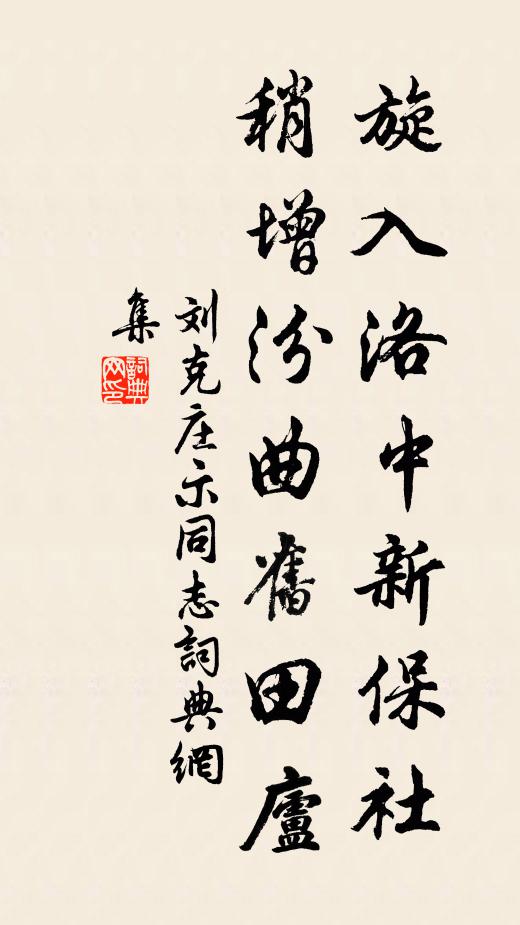 旋入洛中新保社
稍增汾曲舊田廬
刘克庄示同志詞典網
集
詞典
网印